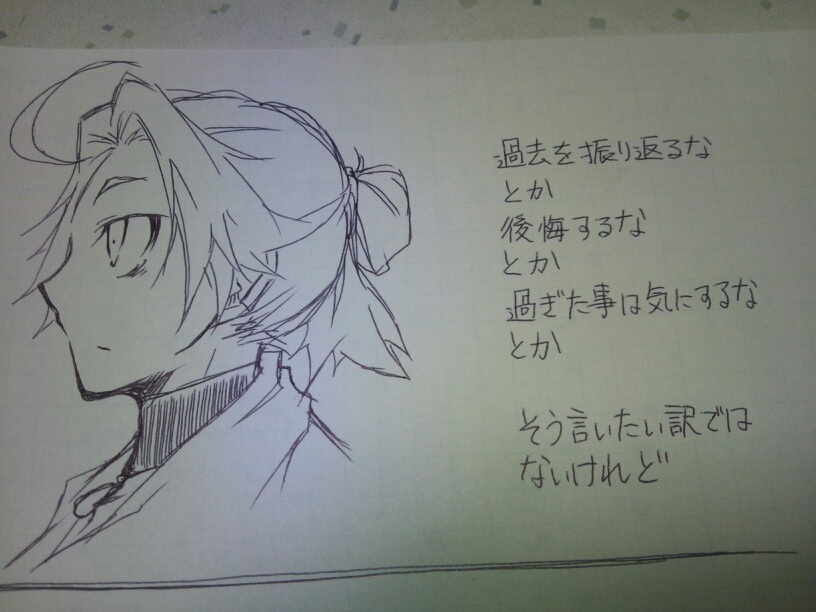 過去を振り返るな
とか
後悔するな
とか
過ぎた事は気にするな
とか
そう言いたい訳では
ないけれど